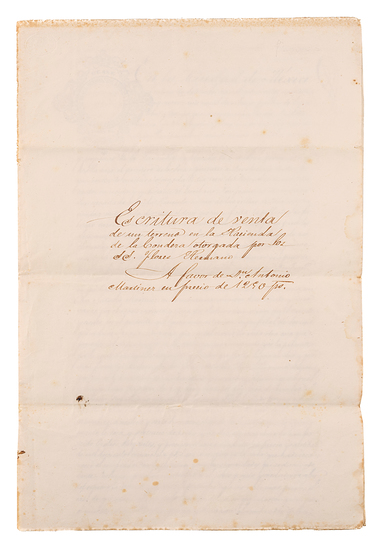 Escritura de venta
de un terreno en la Hacienda
de la Condesa otorgada por los
S.S. Flores Hermano
A favor de Dn. Antonio
Martinez en precio de 1250 ps.